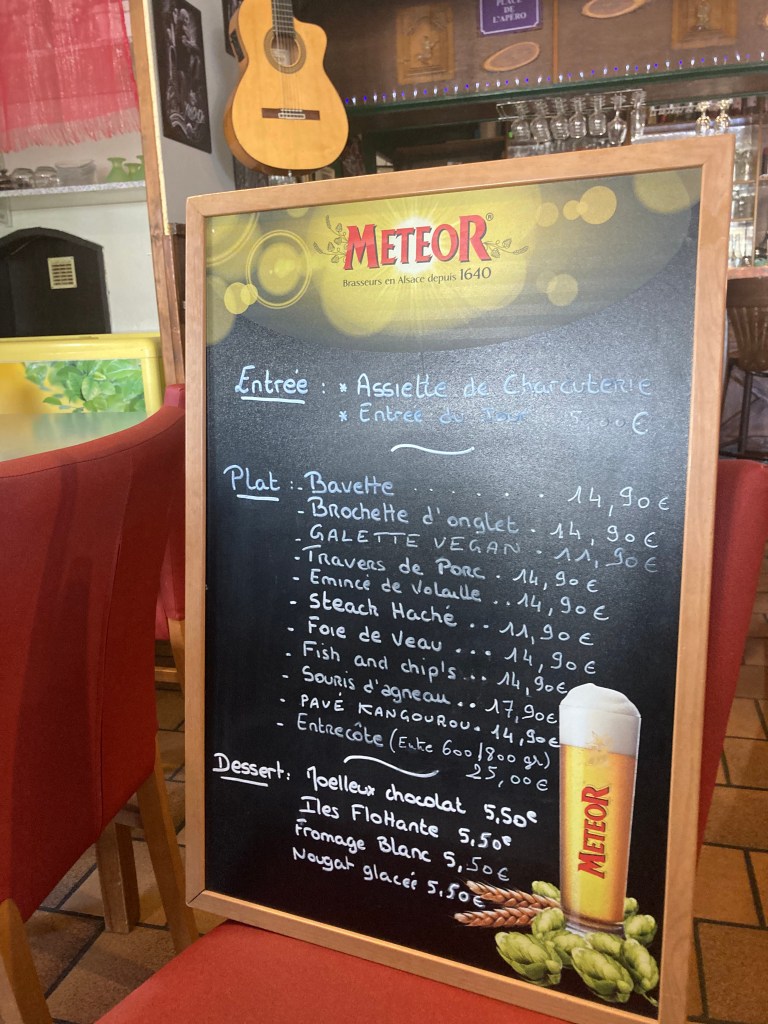 PLACE
DE
L'APÉRO
METEOR®
Brasseurs en Alsace depuis 1640
Entrée : * Assiette de Charcuterie
* Entrée du Jour 5,00€
Plat : - Bavette . . . . . . 14,90€
- Brochette d'onglet . 14,90€
- GALETTE VEGAN . 11,90€
- Travers de Porc . 14,90€
- Emincé de Volaille .. 14,90€
- Steack Haché .. 11,90€
- Foie de Veau ... 14,90€
- Fish and chip's .. 14,90€
- Souris d'agneau .. 17,90€
- PAVÉ KANGOUROU . 14,90€
- Entrecôte (Entre 600/800 gr)
25,00€
Dessert : Moelleux chocolat 5,50€
Iles Flottante 5,50€
Fromage Blanc 5,50€
Nougat glacée 5,50€
METEOR